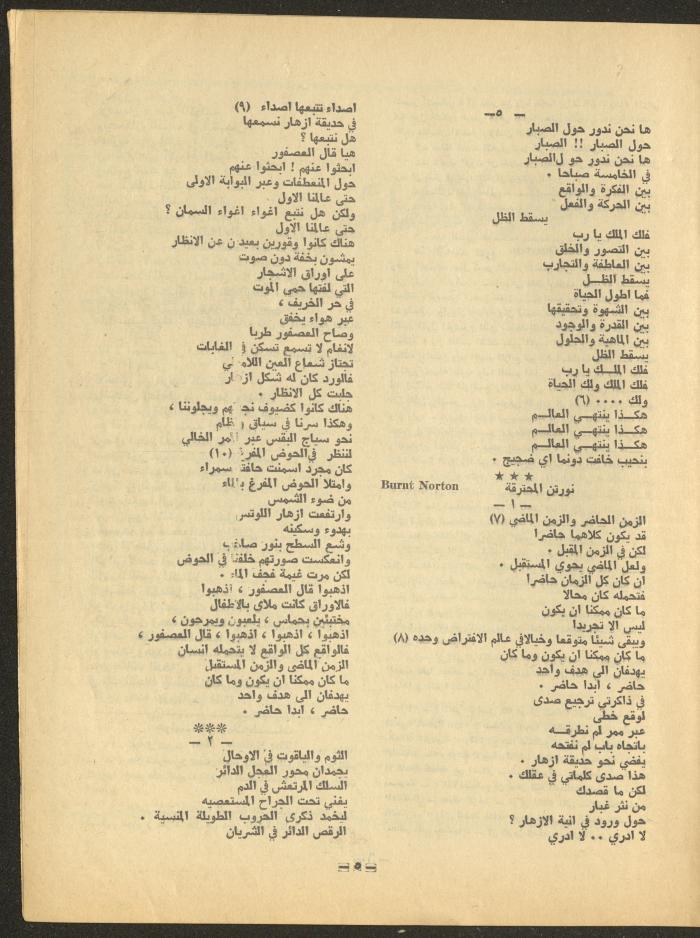 — ٥ —
ها نحن ندور حول الصبار
حول الصبار !! الصبار
ها نحن ندور حو لالصبار
في الخامسة صباحا .
بين الفكرة والواقع
بين الحركة والفعل
يسقط الظل
فلك الملك يا رب
بين التصور والخلق
بين العاطفة والتجارب
يسقط الظــل
فما اطول الحياة
بين الشهوة وتحقيقها
بين القدرة والوجود
بين الماهية والحلول
يسقط الظل
فلك الملــك يا رب
فلك الملك ولك الحياة
ولك .... (٦)
هكــذا ينتهــي العالــم
هكــذا ينتهــي العالــم
هكــذا ينتهــي العالــم
بنحيب خافت دونما اي ضجيج .
★ ★ ★
نورتن المحترقة Burnt Norton
— ١ —
الزمن الحاضر والزمن الماضي (٧)
قد يكون كلاهما حاضرا
لكن في الزمن المقبل .
ولعل الماضي يحوي المستقبل .
ان كان كل الزمان حاضرا
فتحمله كان محالا
ما كان ممكنا ان يكون
ليس الا تجريدا
ويبقى شيئا متوقعا وخيالافي عالم الافتراض وحده (٨)
ما كان ممكنا ان يكون وما كان
يهدفان الى هدف واحد
حاضر ، ابدا حاضر .
في ذاكرتي ترجيع صدى
لوقع خطى
عبر ممر لم نطرقــه
باتجاه باب لم نفتحه
يفضي نحو حديقة ازهار .
هذا صدى كلماتي في عقلك .
لكن ما قصدك
من نثر غبار
حول ورود في انية الازهار ؟
لا ادري .. لا ادري
اصداء تتبعها اصداء (٩)
في حديقة ازهار نسمعها
هل نتبعها ؟
هيا قال العصفور
ابحثوا عنهم ! ابحثوا عنهم
حول المنعطفات وعبر البوابة الاولى
حتى عالمنا الاول
ولكن هل نتبع اغواء اغواء السمان ؟
حتى عالمنا الاول
هناك كانوا وقورين بعيدين عن الانظار
يمشون بخفة دون صوت
على اوراق الاشجار
التي لفتها حمى الموت
في حر الخريف ،
عبر هواء يخفق
وصاح العصفور طربا
لانغام لا تسمع تسكن في الغابات
تجتاز شعاع العين اللامرئي
فالورد كان له شكل ازهار
جلبت كل الانظار .
هناك كانوا كضيوف نجلهم ويجلوننا ،
وهكذا سرنا في سياق ونظام
نحو سياج البقس عبر الممر الخالي
لننظر فيالحوض المفرغ (١٠)
كان مجرد اسمنت حافته سمراء
وامتلا الحوض المفرغ بالماء
من ضوء الشمس
وارتفعت ازهار اللوتس
بهدوء وسكينه
وشع السطح بنور صاخب
وانعكست صورتهم خلفنا في الحوض
لكن مرت غيمة فجف الماء .
اذهبوا قال العصفور ، اذهبوا
فالاوراق كانت ملاى بالاطفال
مختبئين بحماس ، يلعبون ويمرحون ،
اذهبوا ، اذهبوا ، اذهبوا ، قال العصفور ،
فالواقع كل الواقع لا يتحمله انسان
الزمن الماضي والزمن المستقبل
ما كان ممكنا ان يكون وما كان
يهدفان الى هدف واحد
حاضر ، ابدا حاضر .
***
— ٢ —
الثوم والياقوت في الاوحال
يجمدان محور العجل الدائر
السلك المرتعش في الدم
يغني تحت الجراح المستعصيه
ليخمد ذكرى الحروب الطويلة المنسية .
الرقص الدائر في الشريان
— ٥ —